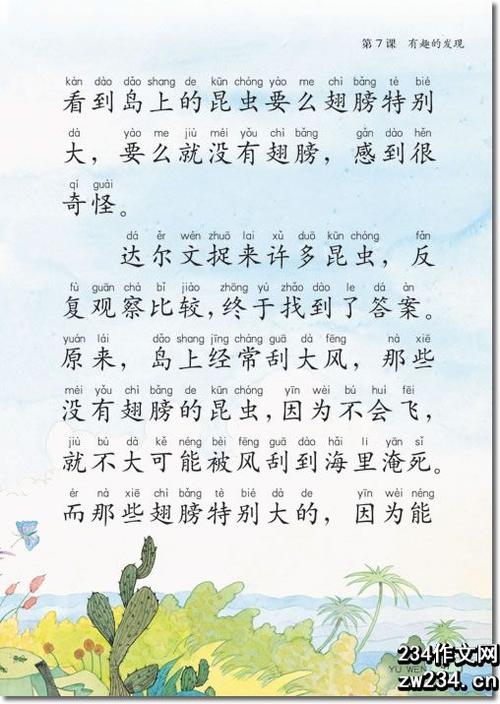 第7课 有趣的发现
kàn dào dǎo shang de kūn chóng yào me chì bǎng tè bié
看到岛上的昆虫要么翅膀特别
dà yào me jiù méi yǒu chì bǎng gǎn dào hěn
大，要么就没有翅膀，感到很
qí guài
奇怪。
dá ěr wén zhuō lai xǔ duō kūn chóng fǎn
达尔文捉来许多昆虫，反
fù guān chá bǐ jiào zhōng yú zhǎo dào le dá àn
复观察比较，终于找到了答案。
yuán lái dǎo shang jīng cháng guā dà fēng nà xiē
原来，岛上经常刮大风，那些
méi yǒu chì bǎng de kūn chóng yīn wèi bú huì fēi
没有翅膀的昆虫，因为不会飞，
jiù bú dà kě néng bèi fēng guā dào hǎi li yān sǐ
就不大可能被风刮到海里淹死。
ér nà xiē chì bǎng tè bié dà de yīn wèi néng
而那些翅膀特别大的，因为能
YU WEN
234作文网
zw234.cn